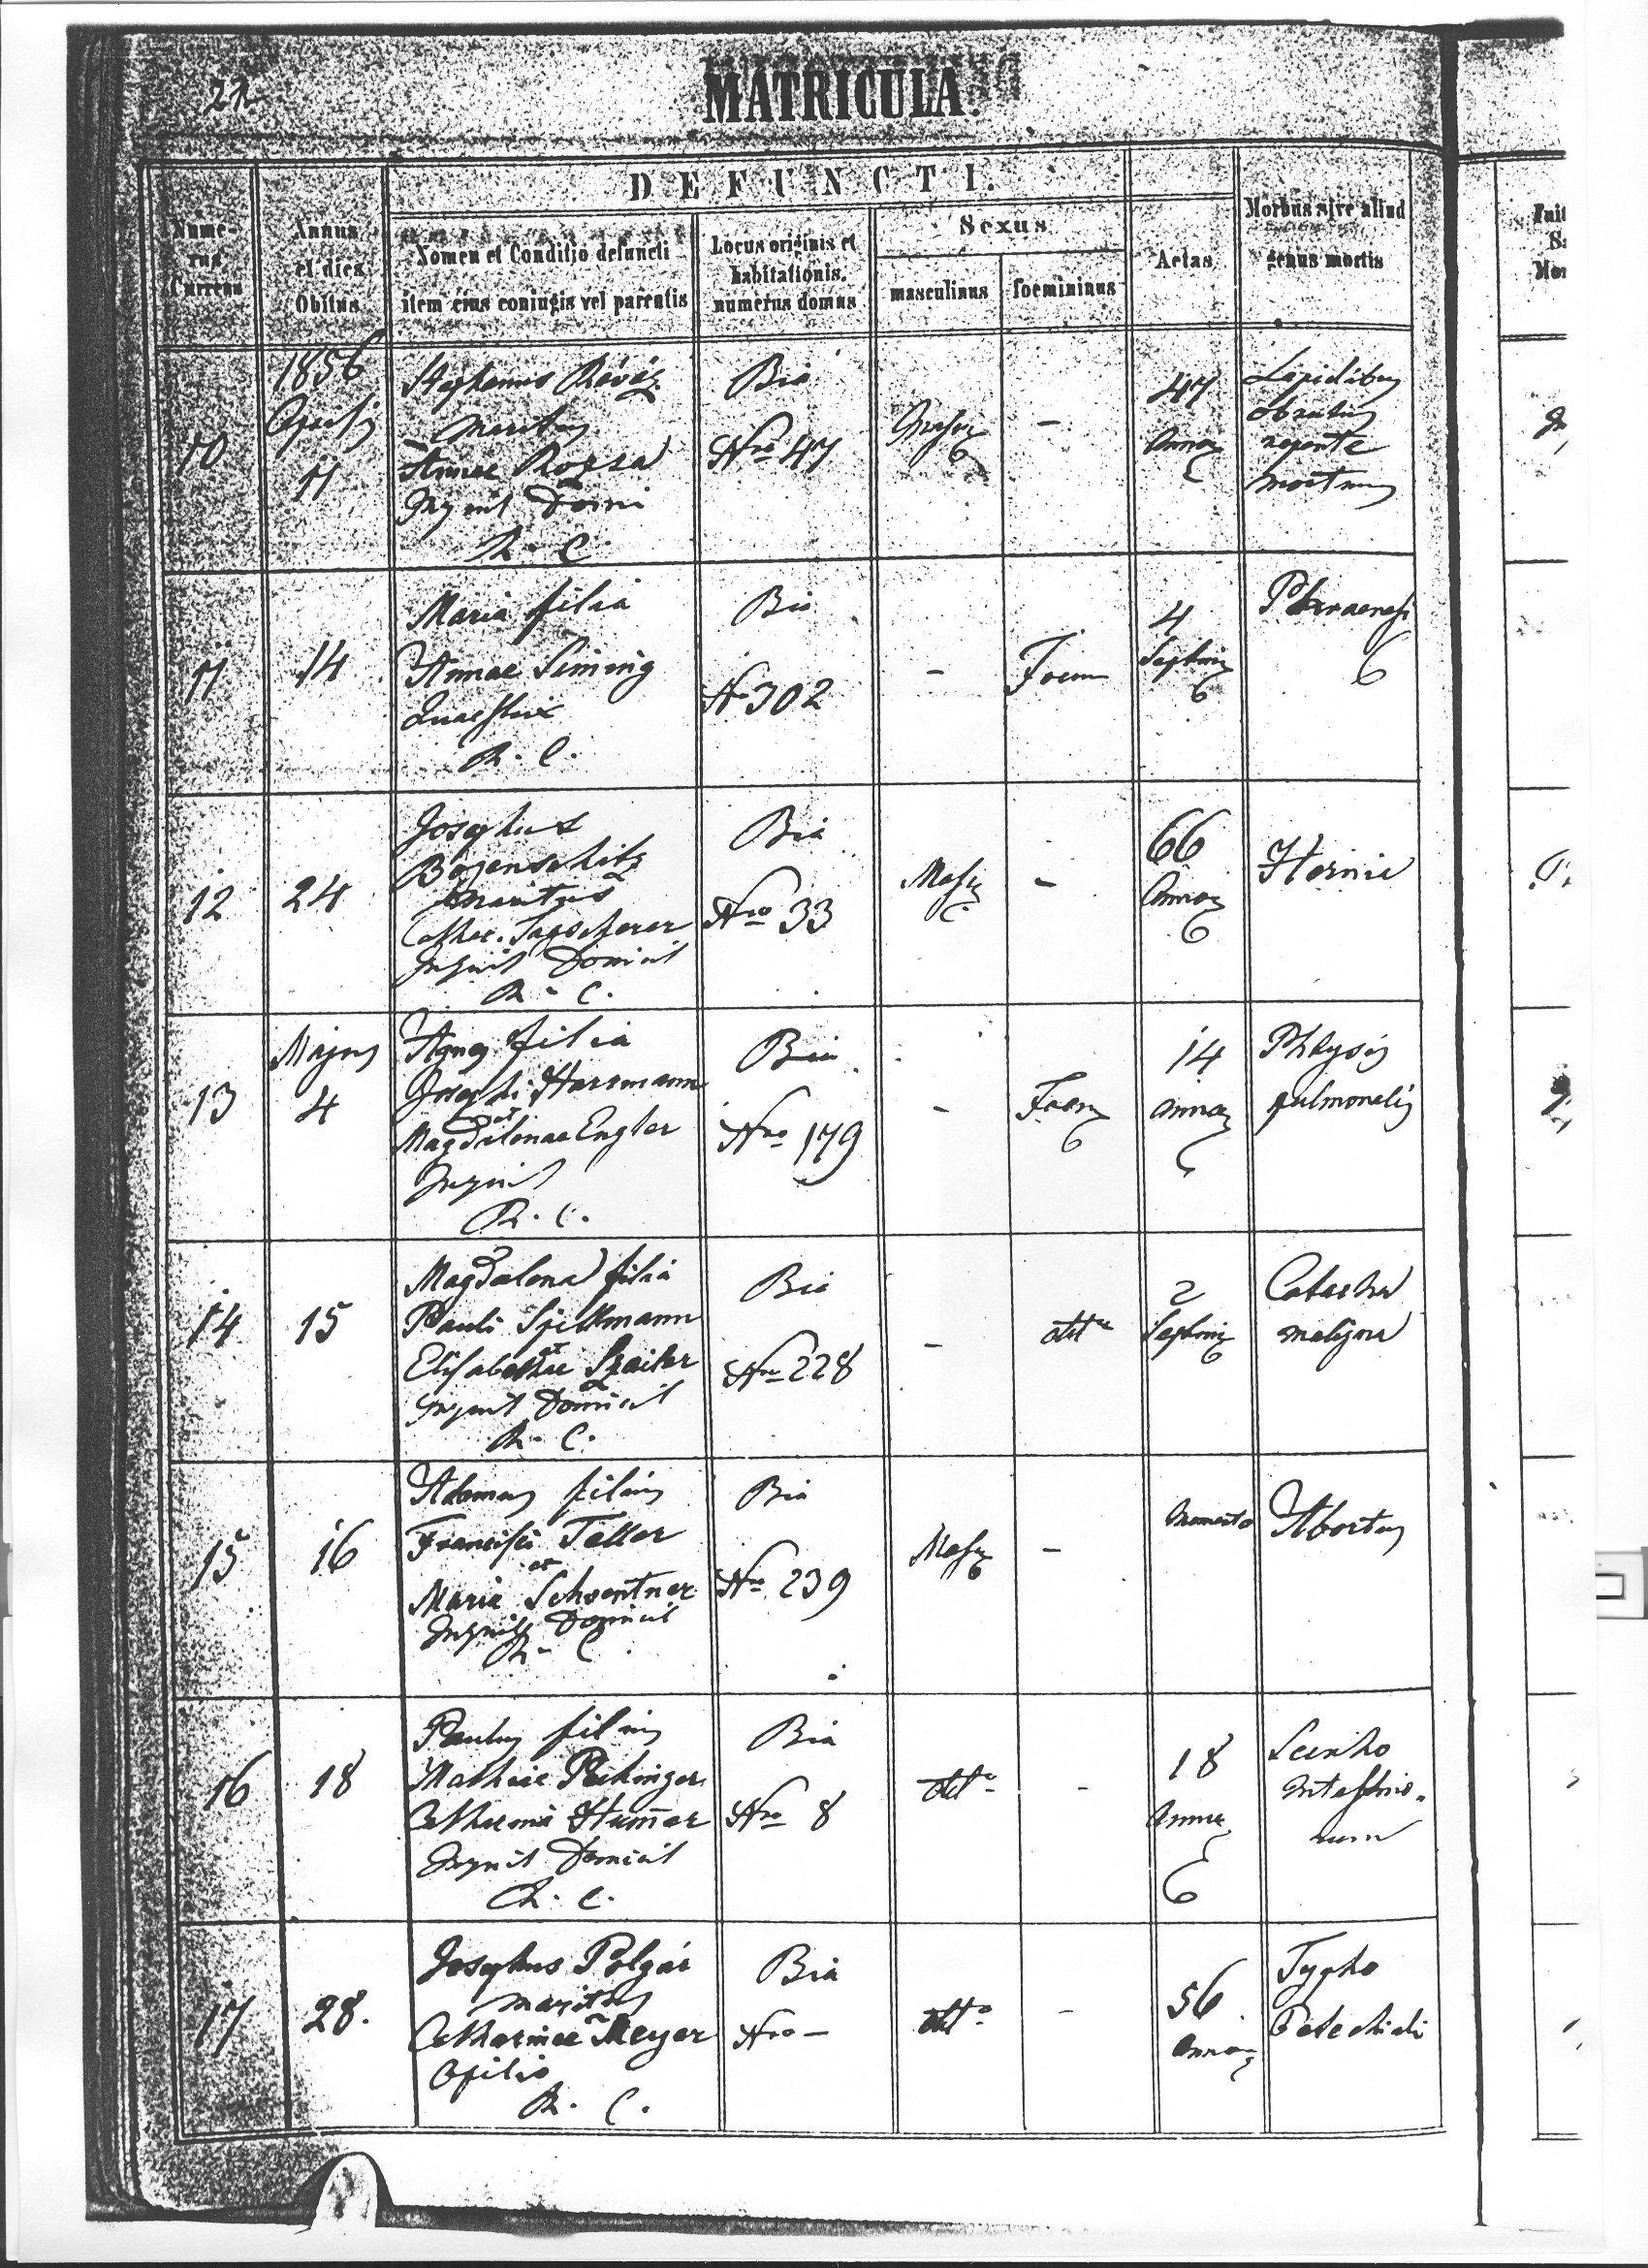 22
MATRICULA.
DEFUNCTI.
Nume-
rus
Currens
Annus
et dies
Obitus
Nomen et Conditio defuncti
item eius coniugis vel parentis
Locus originis et
habitationis.
numerus domus
Sexus
masculinus
foemininus
Aetas
Morbus sive aliud
genus mortis
10
1856
Aprilis
11
Stephanus Révész
maritus
Annae Rozsa
R. C.
Bia
Nro 47
Masc
-
47
annor
Lapidibus
obrutus
repente
mortuus
11
14
Maria filia
Annae Siming
R. C.
Bia
N 302
-
Foem
4
Septim
12
24
Josephus
Bozenschitz
maritus
Cathar. Sagscherer
Inquil Domicil
R. C.
Bia
Nro 33
Masc
-
66
Annor
Hernia
13
Majus
4
Agnes filia
Josephi Harrmann
et
Magdalenae Engler
Inquil
R. C.
Bia
Nro 179
-
Foem
14
annor
Phtysis
pulmonalis
14
15
Magdalena filia
Pauli Spillmann
et
Elisabethae Szeiler
Inquil Domicil
R. C.
Bia
Nro 228
-
dtto
2
Septim
Catarrha
maligna
15
16
Adamus filius
Francisci Teller
et
Maria Schoentner
Inquil Domicil
R. C.
Bia
Nro 239
Masc
-
momento
Abortus
16
18
Paulus filius
Mathiae Pechinger
Catharina Hum̃er
Inquil Domicil
R. C.
Bia
Nro 8
dtto
-
18
Annor
Scirrho
intestino-
rum
17
28.
Josephus Polgár
maritus
Catharinae Meyer
Opilio
R. C.
Bia
Nro -
dtto
-
56
Annor
Typho
Petechiali